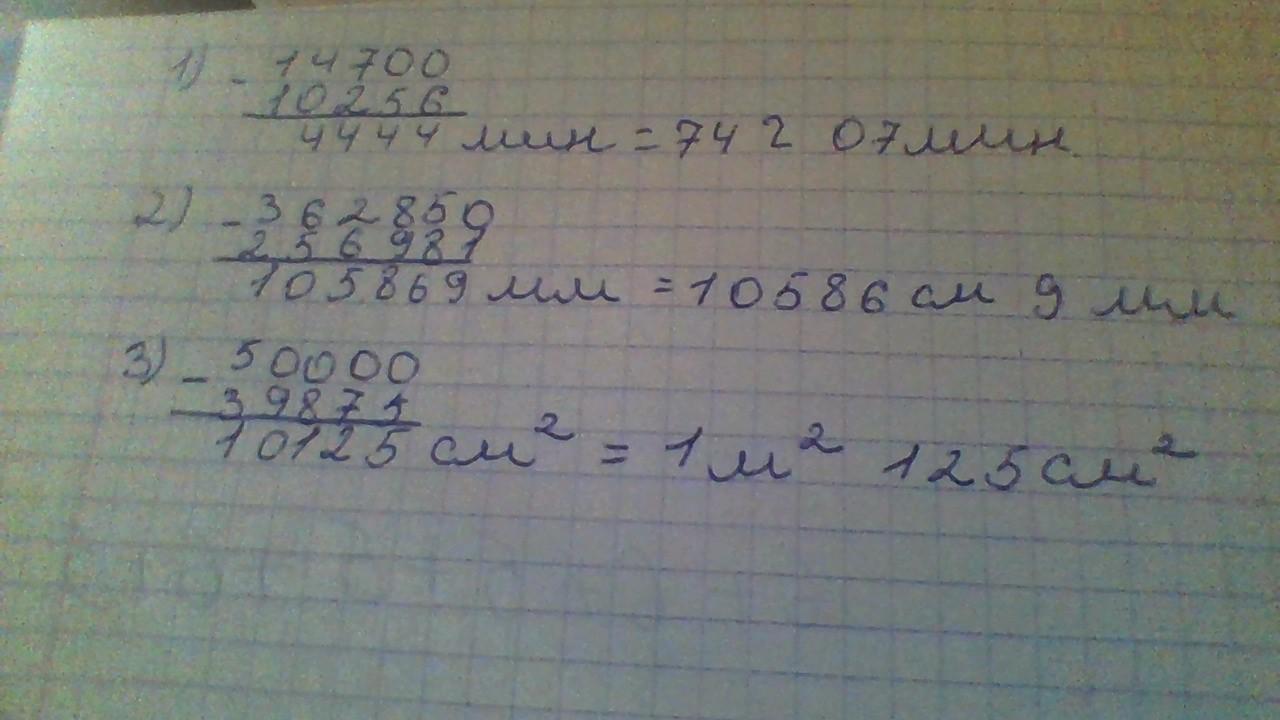 1) - 14700
10256
4444 мин = 74 г 07 мин.
2) - 362850
256981
105869 мм = 10586 см 9 мм
3) - 50000
39875
10125 см² = 1 м² 125 см²